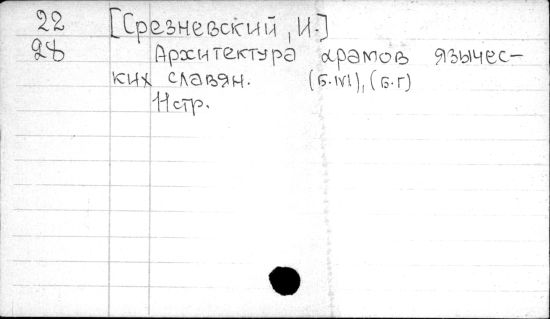 22 [Срезневский, И.]
28 Архитектура храмов язычес-
ких славян. (Б.М), (Б.Г)
11стр.